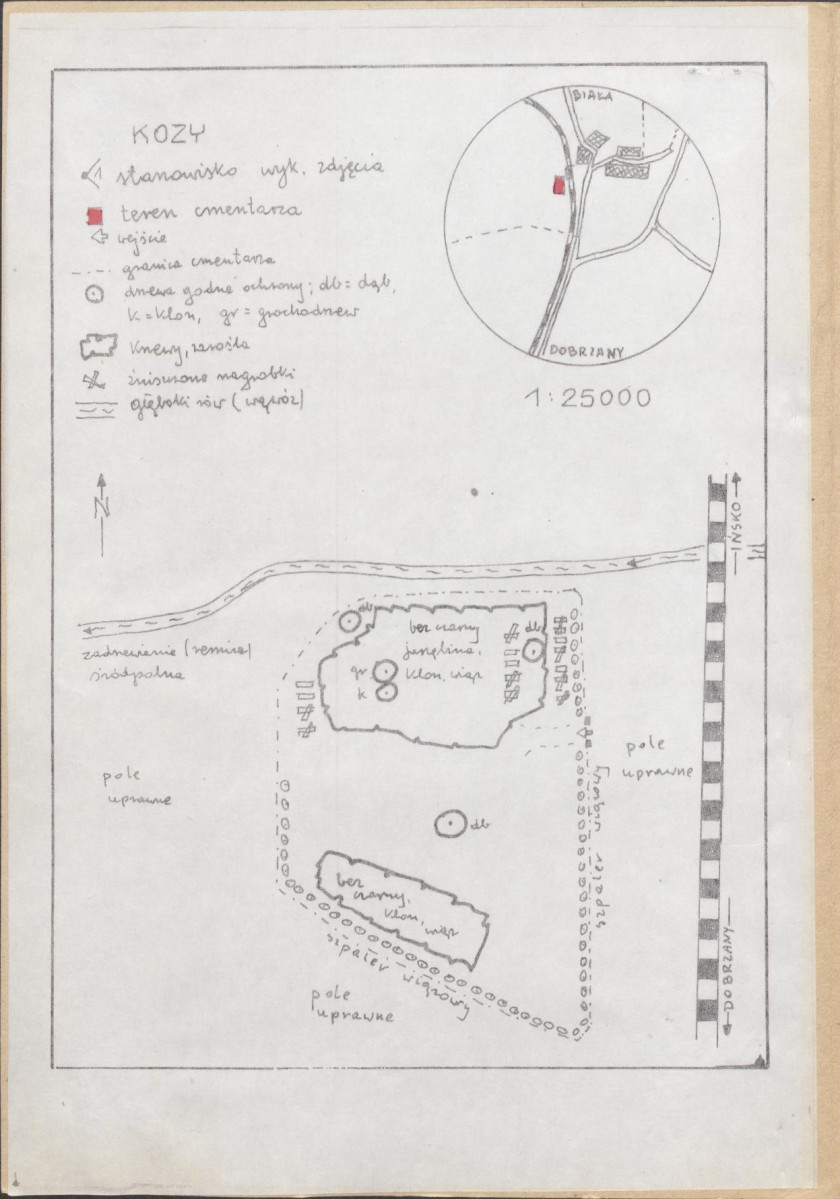 KOZY
stanowisko wyk. zdjęcia
teren cmentarza
wejście
granica cmentarza
drzewa godne ochrony; db = dąb,
k = klon, gr = grochodrzew
krzewy, zarośla
zniszczone nagrobki
głęboki rów (wąwóz)
BIAŁA
DOBRZANY
1:25000
N
IŃSKO
zadrzewienie (remiza)
śródpolne
db
bez czarny
jarzębina,
klon, wiąz
db
gr
k
pole
uprawne
pole
uprawne
szpaler wiązowy
db
bez
czarny,
klon, wiąz
szpaler wiązowy
pole
uprawne
DOBRZANY